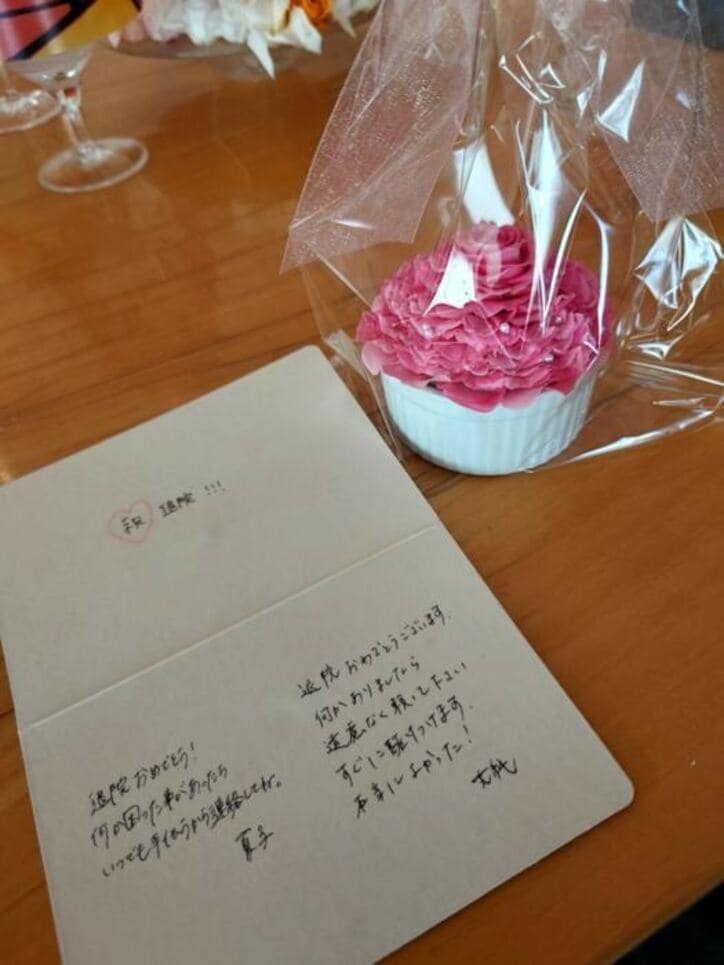 祝 退院 !!!
退院おめでとう!
何か困った事があったら
いつでも手伝うから連絡してね。
夏子
退院おめでとうございます。
何かありましたら
遠慮なく頼って下さい
すぐに駆けつけます。
本当によかった!